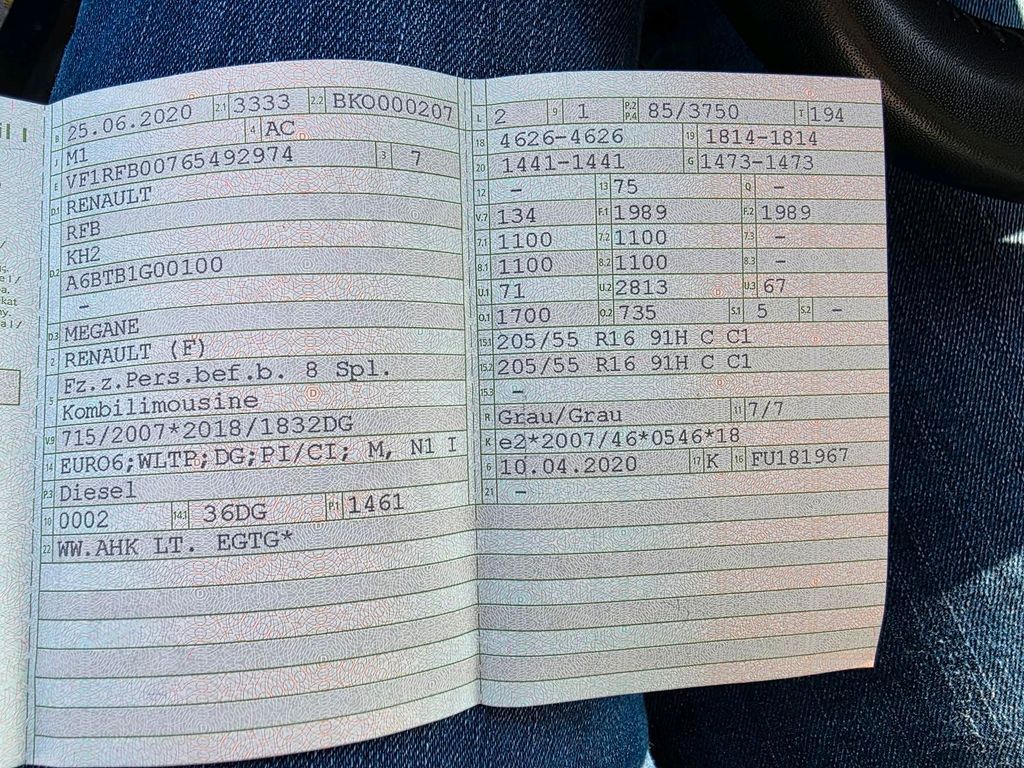 B 25.06.2020 2.1 3333 2.2 BKO000207
J M1 4 AC
E VF1RFB00765492974 3 7
D.1 RENAULT
RFB
D.2 KH2
A6BTB1G00100
–
D.3 MEGANE
2 RENAULT (F)
5 Fz.z.Pers.bef.b. 8 Spl.
Kombilimousine
V.9 715/2007*2018/1832DG
14 EURO6;WLTP;DG;PI/CI; M, N1 I
P.3 Diesel
10 0002 14.1 36DG P.1 1461
22 WW.AHK LT. EGTG*
L 2 9 1 P.2 P.4 85/3750 T 194
18 4626-4626 19 1814-1814
20 1441-1441 G 1473-1473
12 – 13 75 Q –
V.7 134 F.1 1989 F.2 1989
7.1 1100 7.2 1100 7.3 –
8.1 1100 8.2 1100 8.3 –
U.1 71 U.2 2813 U.3 67
O.1 1700 O.2 735 S.1 5 S.2 –
15.1 205/55 R16 91H C C1
15.2 205/55 R16 91H C C1
15.3 –
R Grau/Grau 11 7/7
K e2*2007/46*0546*18
6 10.04.2020 17 K 16 FU181967
21 –